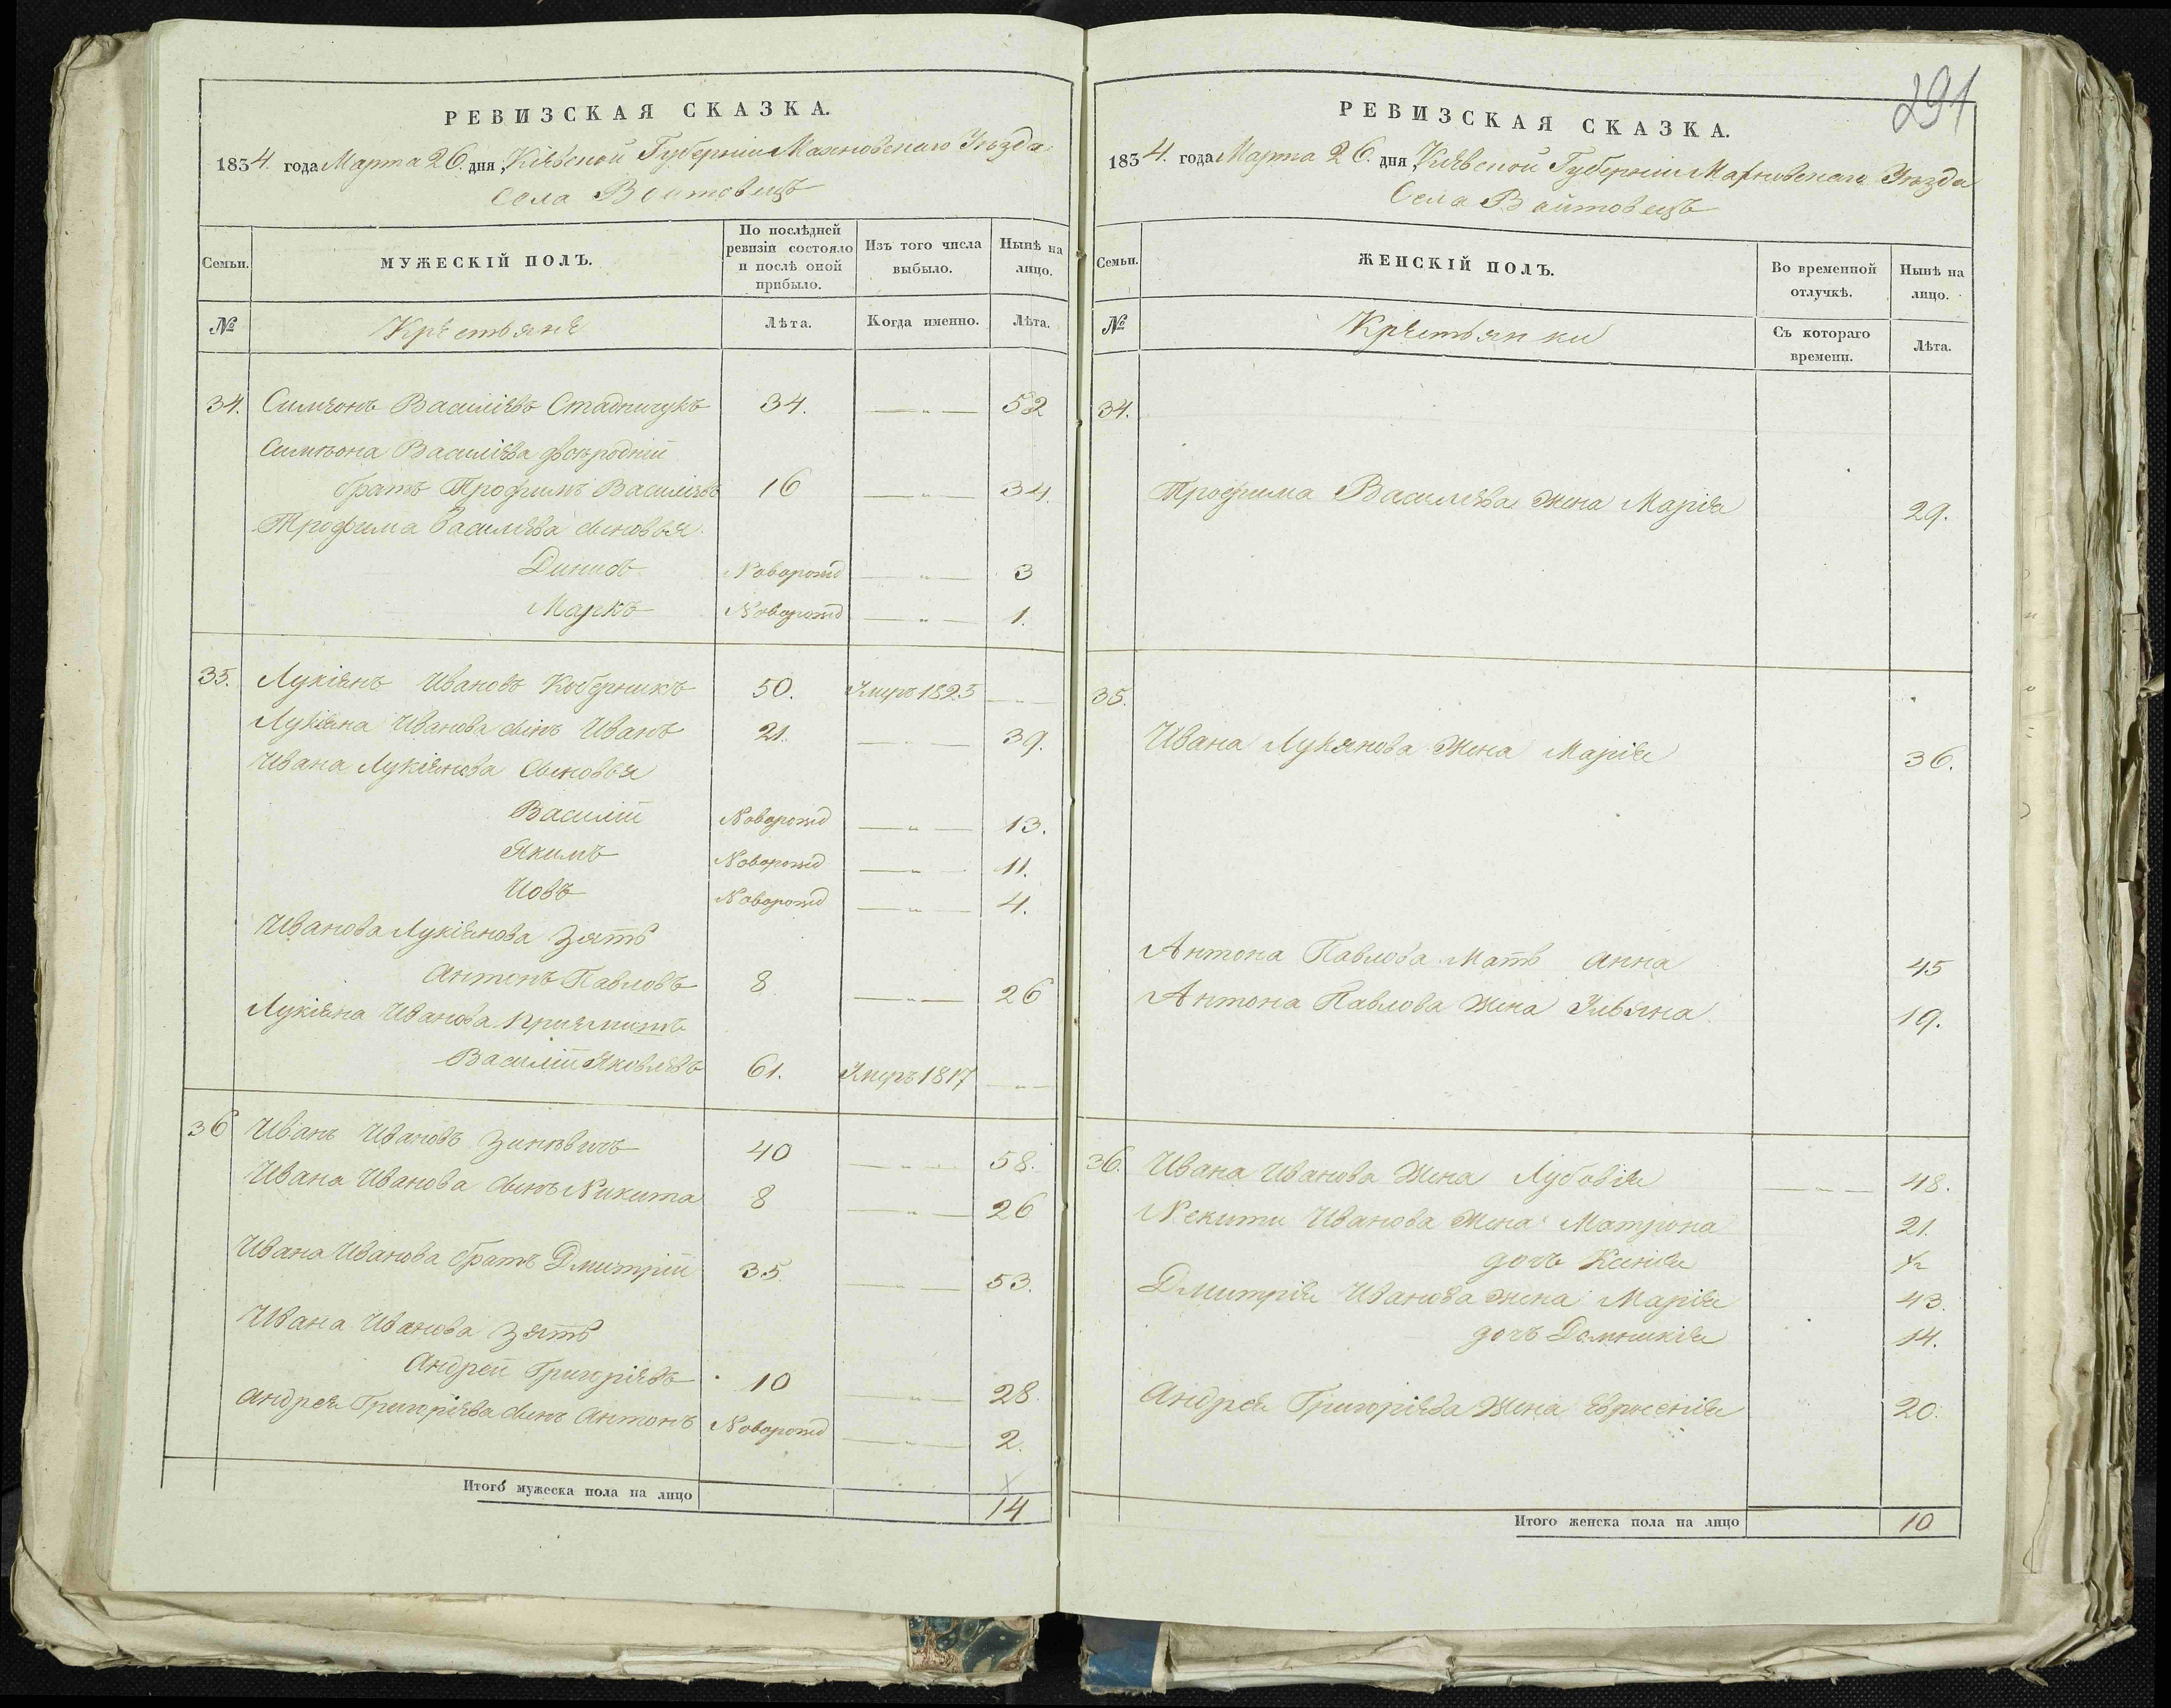 РЕВИЗСКАЯ СКАЗКА.
1834. года Марта 26. дня, Кіевской Губерніи Махновскаго Уѣзда
Села Воитовецъ
Семьи.
МУЖЕСКІЙ ПОЛЪ.
По послѣдней ревизіи состояло и послѣ оной прибыло.
Изъ того числа выбыло.
Нынѣ на лицо.
№
Крестьяне
Лѣта.
Когда именно.
Лѣта.
34. Симеонъ Василіевъ Стадничукъ 34. — „ — 52
Симеона Василіева двоюродній
братъ Трофимъ Василіевъ 16 — „ — 34.
Трофима Василіева сыновья
Динисъ Новорожд — „ — 3
Маркъ Новорожд — „ — 1.
35. Лукіянъ Ивановъ Коберникъ 50. Умеръ 1825 — „ —
Лукіяна Иванова сынъ Иванъ 21. — „ — 39.
Ивана Лукіянова сыновья
Василій Новорожд — „ — 13.
Якимъ Новорожд — „ — 11.
Иовъ Новорожд — „ — 4.
Иванова Лукіянова зять
Антонъ Павловъ 8 — „ — 26
Лукіяна Иванова приемишъ
Василій Яковлевъ 61. Умеръ 1817 — „ —
36 Иванъ Ивановъ Зинкевичъ 40 — „ — 58.
Ивана Иванова сынъ Никита 8 — „ — 26
Ивана Иванова братъ Дмитрій 35. — „ — 53.
Ивана Иванова зять
Андрей Григоріевъ 10 — „ — 28.
Андрея Григоріева сынъ Антонъ Новорожд — „ — 2.
Итого мужеска пола на лицо 14
291
РЕВИЗСКАЯ СКАЗКА.
1834. года Марта 26. дня, Кіевской Губерніи Махновскаго Уѣзда
Села Войтовецъ
Семьи.
ЖЕНСКІЙ ПОЛЪ.
Во временной отлучкѣ.
Нынѣ на лицо.
№
Крестьянки
Съ котораго времени.
Лѣта.
34.
Трофима Василіева жена Марія 29.
35.
Ивана Лукянова жена Марія 36.
Антона Павлова мать Анна 45
Антона Павлова жена Ульяна 19.
36. Ивана Иванова жена Лубовія — „ — 48.
Некити Иванова жена Матрона 21.
дочь Ксенія ½
Дмитрія Иванова жена Марія 43.
дочь Домникія 14.
Андрея Григоріева жена Евросенія 20.
Итого женска пола на лицо 10